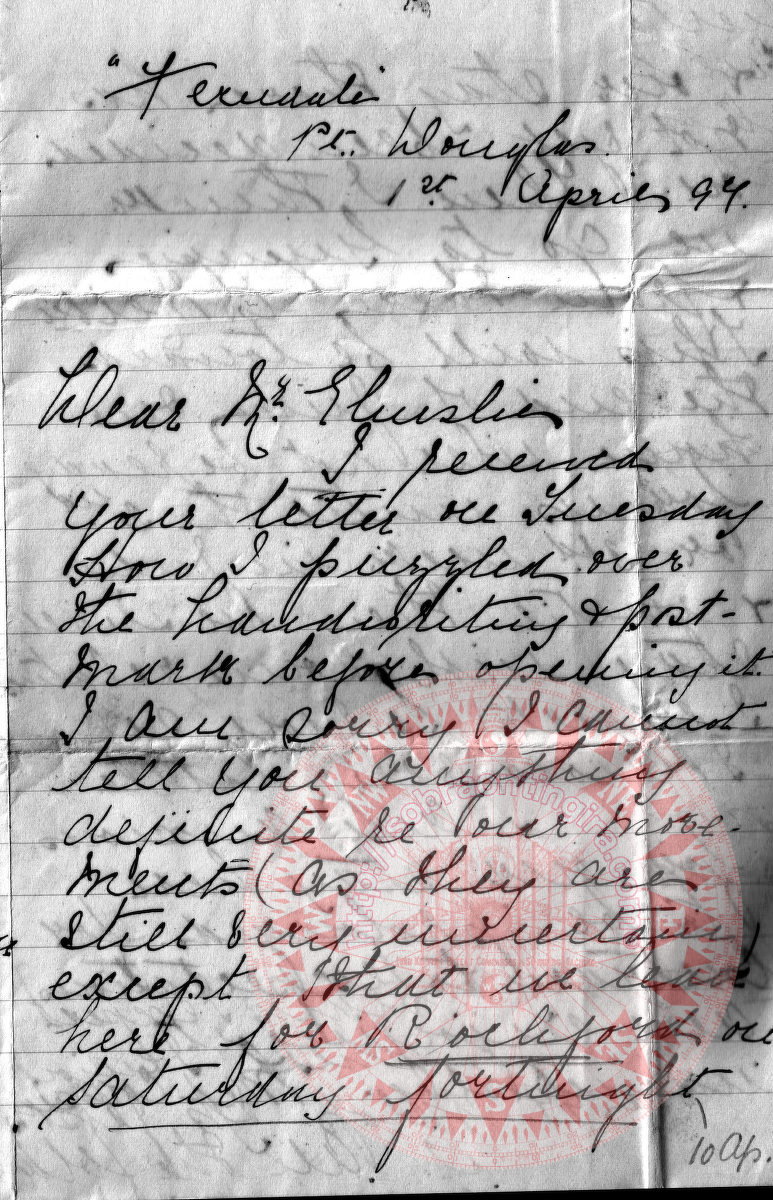 "Ferndale"
Pt. Douglas.
1st April, 97.
Dear Mr.
I received
your letter on Tuesday
How I puzzled over
the handwriting & post-
mark before opening it.
I am sorry I cannot
tell you anything
definite re our move-
ments (as they are
still very uncertain)
except that we leave
here for Rochford on
Saturday fortnight
10 Ap.